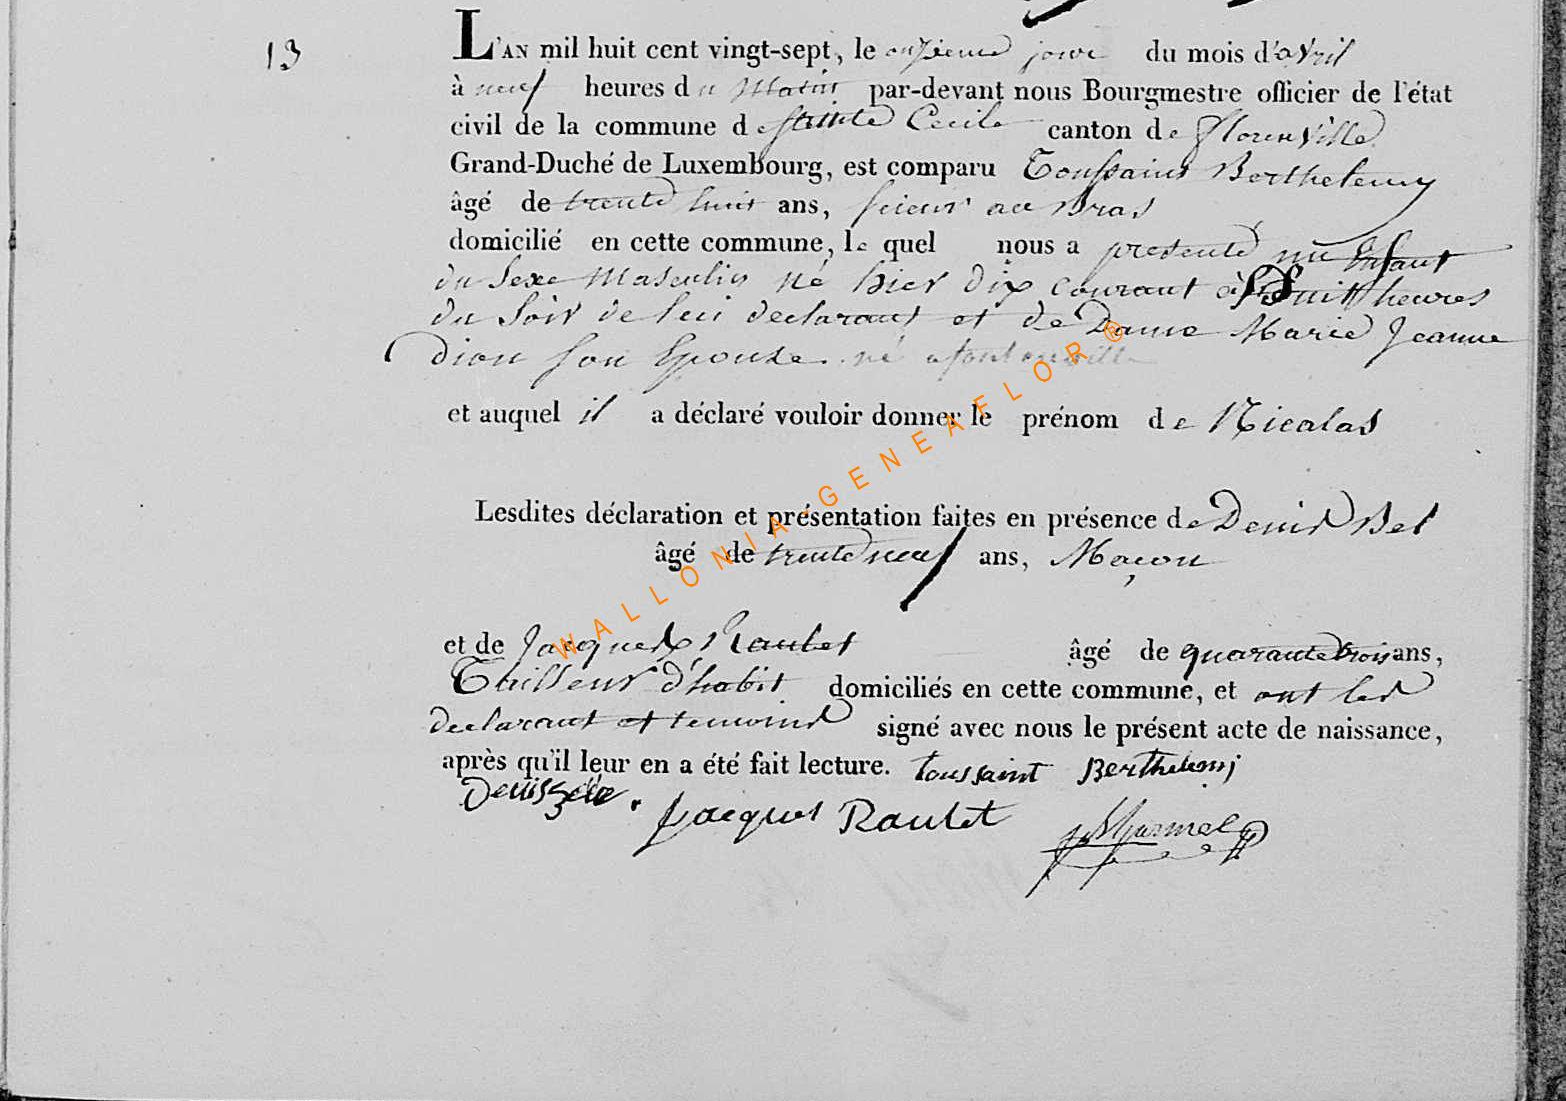 13
L'AN mil huit cent vingt-sept, le onzieme jour du mois d'avril
à neuf heures du Matin par-devant nous Bourgmestre officier de l'état
civil de la commune de Sainte Cecile canton de florenville
Grand-Duché de Luxembourg, est comparu Toussaint Berthelemy
âgé de trente huit ans, scieur au Bras
domicilié en cette commune, le quel nous a presenté un Enfant
du Sexe Masculin né hier dix courant à huit heures
du Soir de lui declarant et de Dame Marie Jeanne
dion son Epouse. né a
et auquel il a déclaré vouloir donner le prénom de Nicalas
Lesdites déclaration et présentation faites en présence de Denis Bel
âgé de trente neuf ans, Maçon
et de Jacques Raulet âgé de quarante trois ans,
Tailleur d'habit domiciliés en cette commune, et ont les
declarant et temoins signé avec nous le présent acte de naissance,
après qu'il leur en a été fait lecture. toussaint Berthelemi
Jacques Raulet
WALLONIA-GENEAFLOR®